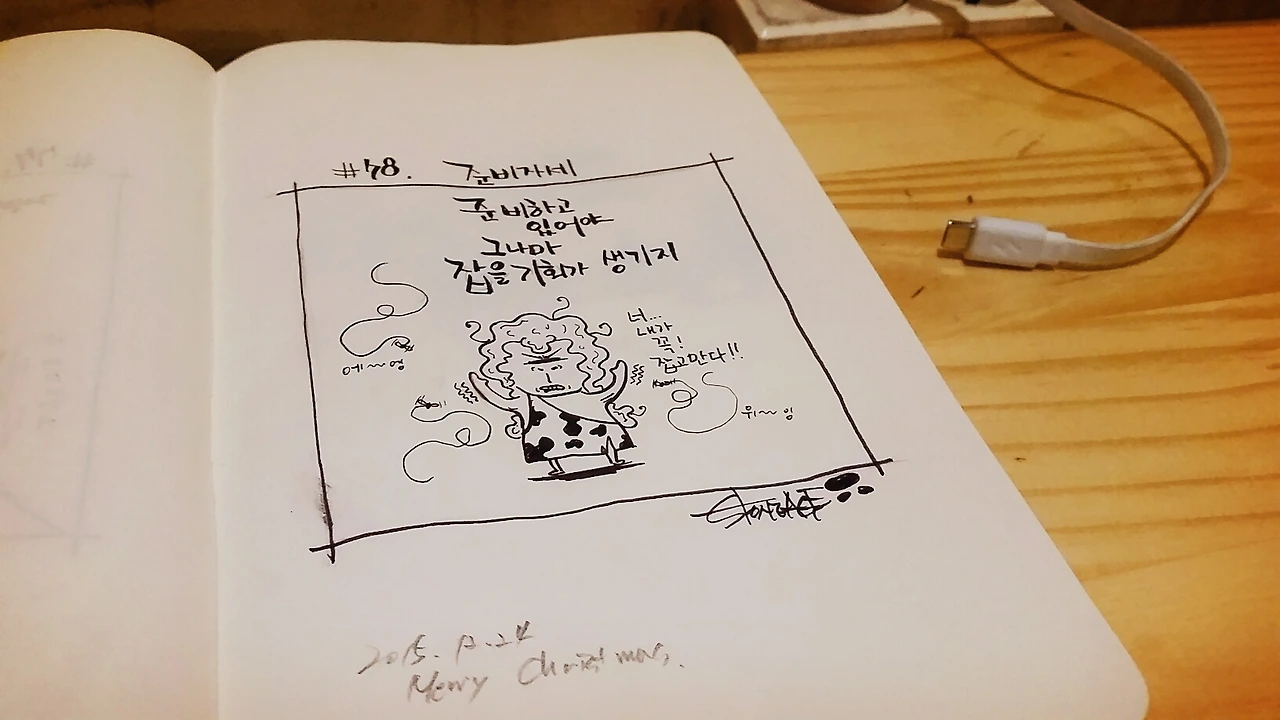 #78. 준비자세
준비하고
있어야
그나마
잡을 기회가 생기지
너...
내가
꼭!
잡고만다!!
에~~엥
위~~잉
STONEAGE
2015. 12. 24
Merry Christmas.